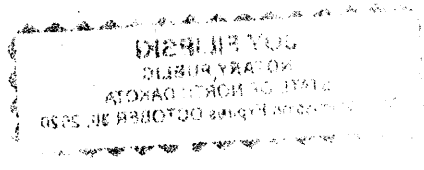 JOY FILIPSKI
NOTARY PUBLIC
STATE OF NORTH DAKOTA
Expires OCTOBER 30, 2020